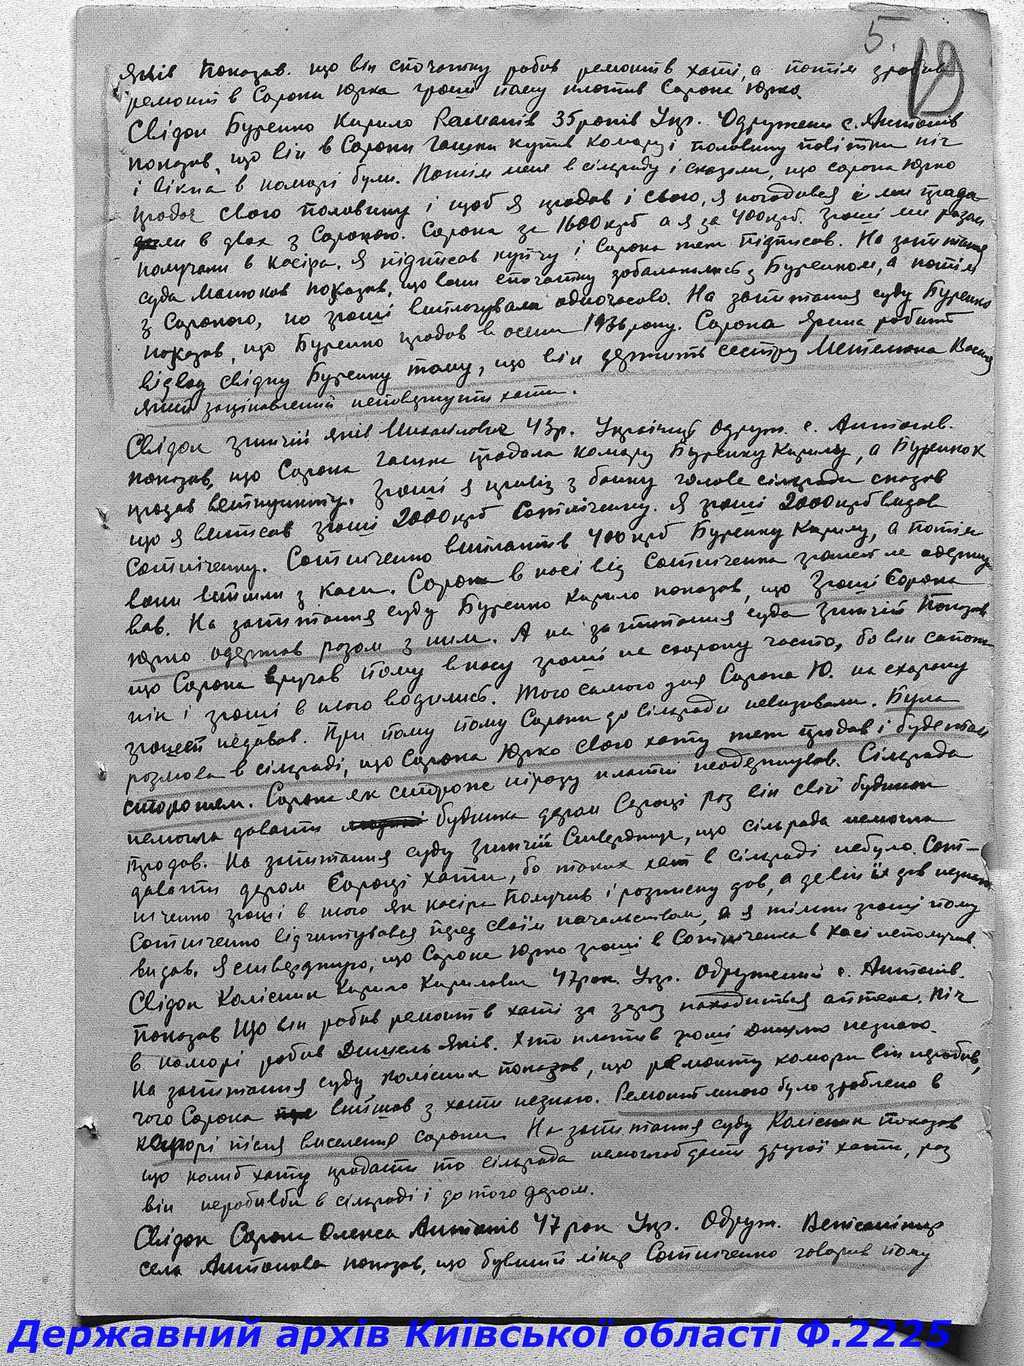 5.
Яків показав. що він спочатку робив ремонт в хаті, а потім зробив
ремонт в Сороки Юрка гроші йому платив Сорока Юрко
Свідок Буренко Кирило Романів 35 років Укр. Одружени с. Антонів
показав, що він в Сороки Ганни купив комору і половину повітки піч
і вікна в коморі були. Потім мене в сільраду і сказали, що сорока Юрко
продає свою половину і щоб я продав і свою, я погодився і ми прода
ли в двох з Сорокою. Сорока за 1600 крб а я за 400 крб. Гроші ми разом
получали в касіра. Я підписав купчу і Сорока теж підписав. На запитання
суда Манюков показав, що вони спочатку забалакались з Буренком, а потім
з Сорокою, но гроші виплочували одночасово. На запитання суду Буренко
показав, що Буренко продав в осени 1936 року. Сорока Ярина робить
відвод свідку Буренку тому, що він держить сестру Метелюка Васил
який заціковлений неповернути хати.
Свідок Згижій Яків Михайлович 43 р. Українець одруж. с. Антонів.
показав, що Сорока Ганна продала комору Буренку Кирилу, а Буренко к
продав ветпункту. Гроші я привіз з банку голова сільради сказав
що я виписав гроші 2000 крб Сотніченку. Я гроші 2000 крб видав
Сотніченку. Сотніченко виплатив 400 крб Буренку Кирилу, а потім
вони вийшли з каси. Сорока в касі від Сотніченка грошей не одержу
вав. На запитання суду Буренко Кирило показав, що Гроші Сорока
Юрко одержав разом з ним. А на запитання суда Згижій Показав
що Сорока вручав йому в касу гроші на схорону часто, бо він сапож
нік і гроші в нього водились. Того самого дня Сорока Ю. на схорону
грошей недавав. При йому йому Сороки до сільради невизивали. Була
розмова в сільраді, що Сорока Юрко свою хату теж продав і буде там
сторожем. Сорока як сторож ніразу платні неодержував. Сільрада
немогла давати будинка даром Сороці раз він свій будинок
продав. На запитання суду Згижій Стверджує, що сільрада немогла
давати даром Сороці хати, бо таких хат в сільраді небуло. Сот-
ніченко гроші в нього як касіра получив і розписку дав, а де він їх дів незнаю
Сотніченко відчитувався перед своїм начальством, а я тільки гроші йому
видав. Я стверджую, що Сорока Юрко гроші в Сотніченка в касі неполучив.
Свідок Колісник Кирило Кирилович 47 рок. Укр. Одружений с. Антонів.
показав Що він робив ремонт в хаті за зараз находиться аптека. Піч
в коморі робив Дишель Яків. Хто платив гроші Дишлю незнаю.
На запитання суду Колісник показав, що ремонту комори він неробив,
чого Сорока вийшов з хати незнаю. Ремонт много було зроблено в
коморі після виселення сороки. На запитання суду Колісник Показав
що коліб хату продати то сільрада немоглаб дати другої хати, раз
він неробивби в сільраді і до того даром.
Свідок Сорока Олекса Антонів 47 рок Укр. Одруж.
села Антонова показав, що бувший лікар Сотніченко говорив йому
Державний архів Київської області Ф.2225